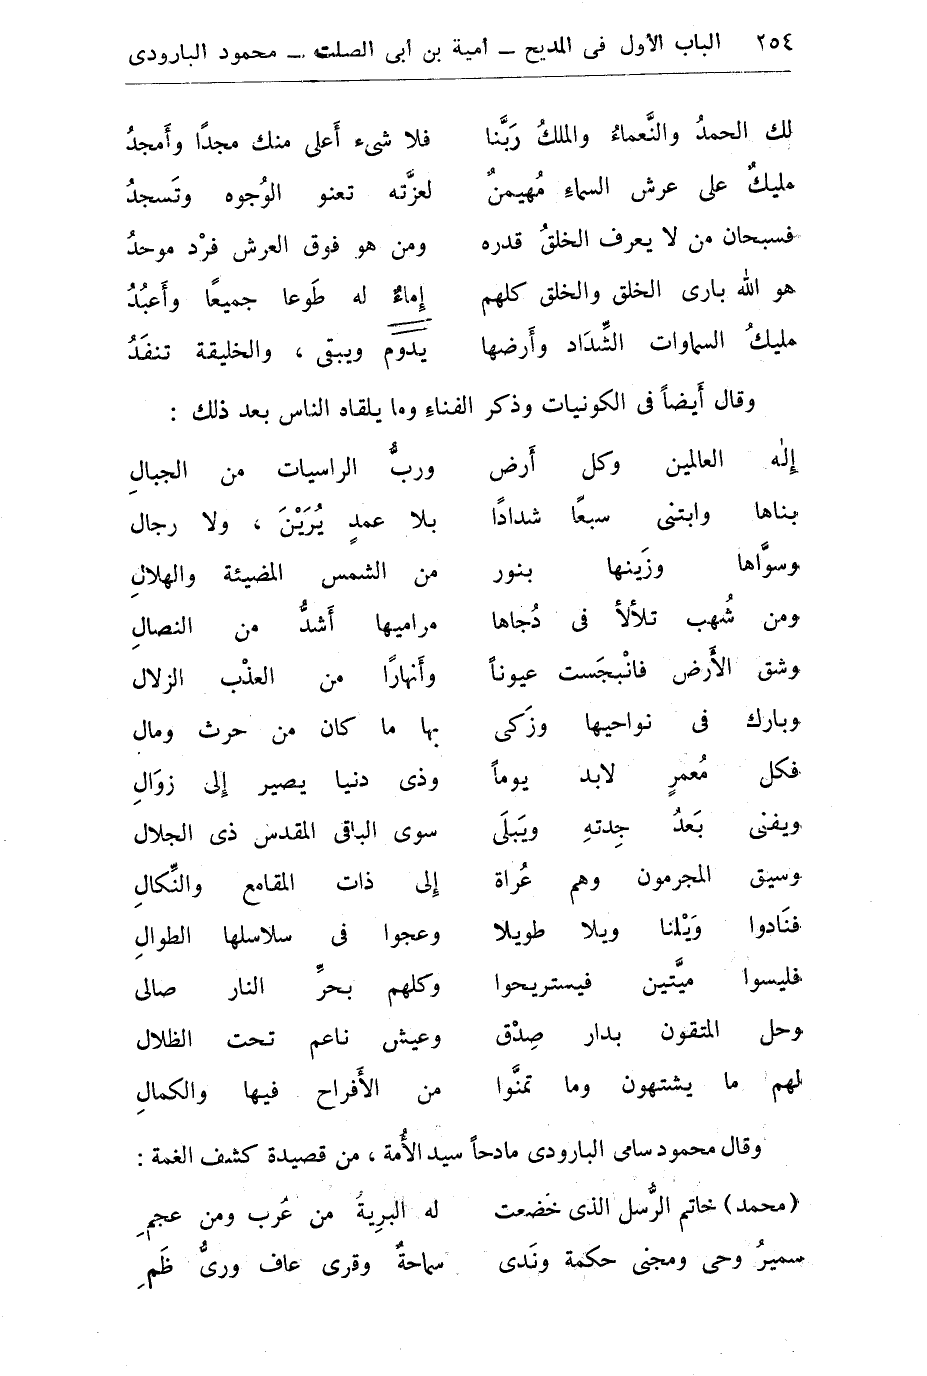 ٢٥٤ الباب الأول فى المديح ـ أمية بن أبى الصلت ـ محمود البارودى
لك الحمدُ والنَّعماءُ والملكُ رَبَّنا فلا شىء أَعلى منك مجدًا وأَمجدُ
مليكٌ على عرش السماءِ مُهيمنٌ لعزَّته تعنو الوُجوه وتَسجدُ
فسبحان من لا يعرف الخلقُ قدره ومن هو فوق العرش فرْد موحدُ
هو الله بارى الخلق والخلق كلهم إِماءٌ له طَوعا جميعًا وأَعبُدُ
مليكُ السماوات الشِّدَاد وأَرضها يدوم ويبقى ، والخليقة تنفَدُ
وقال أَيضاً فى الكونيات وذكر الفناء وما يلقاه الناس بعد ذلك :
إِلٰه العالمين وكل أَرض وربُّ الراسيات من الجبالِ
بناها وابتنى سبعًا شدادًا بلا عمدٍ يُرَيْنَ ، ولا رجال
وسوَّاها وزَينها بنور من الشمس المضيئة والهلالِ
ومن شُهب تلألأ فى دُجاها مراميها أَشدُّ من النصالِ
وشق الأَرض فانْبجَست عيوناً وأَنهارًا من العذْب الزلال
وبارك فى نواحيها وزَكى بها ما كان من حرث ومال
فكل مُعمرٍ لابد يوماً وذى دنيا يصير إِلى زوَالِ
ويفنى بَعدُ جِدتهِ ويَبلَى سوى الباقى المقدس ذى الجلال
وسيق المجرمون وهم عُراة إِلى ذات المقامع والنِّكالِ
فنَادوا وَيْلنا ويلا طويلا وعجوا فى سلاسلها الطوالِ
فليسوا ميَّتين فيستريحوا وكلهم بحرِّ النار صالى
وحل المتقون بدار صِدْق وعيش ناعم تحت الظلال
لهم ما يشتهون وما تمنَّوا من الأَفراح فيها والكمالِ
وقال محمود سامى البارودى مادحاً سيد الأُمة ، من قصيدة كشف الغمة :
(محمد) خاتم الرُّسل الذى خضعت له البريةُ من عُرب ومن عجمِ
سميرُ وحى ومجنى حكمة ونَدى سماحةٌ وقرى عاف ورىُّ ظَمِ